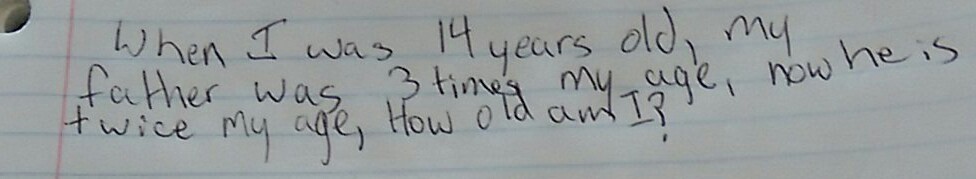 When I was 14 years old, my
father was 3 times my age, now he is
twice my age, How old am I?